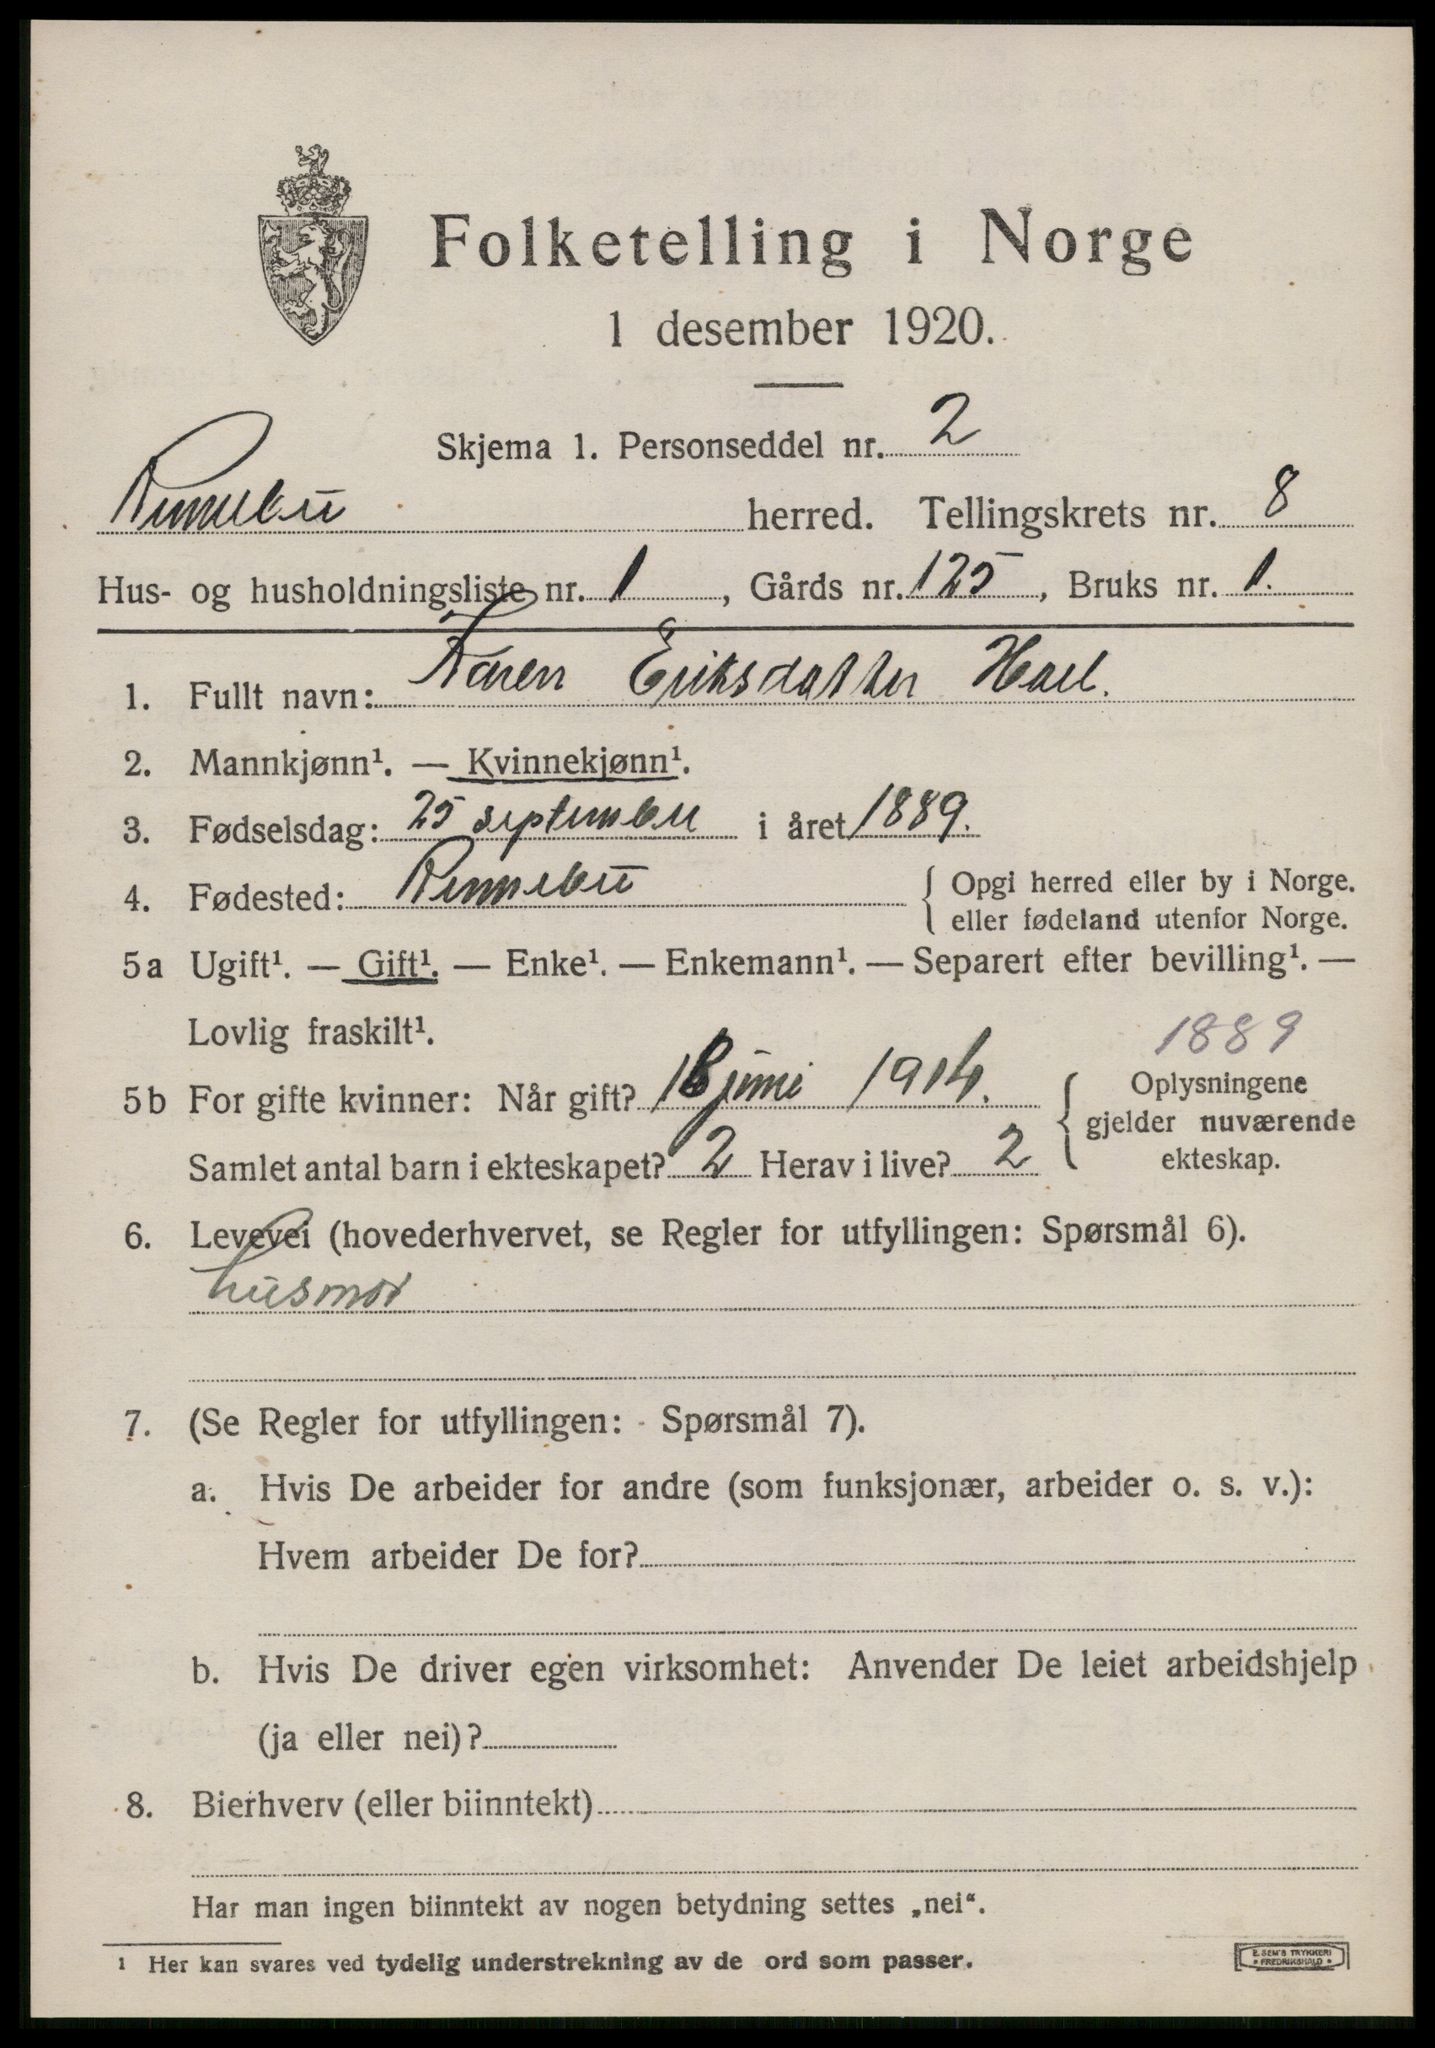 Folketelling i Norge
1 desember 1920.
Skjema 1. Personseddel nr. 2
Rennebu herred. Tellingskrets nr. 8
Hus- og husholdningsliste nr. 1, Gårds nr. 125, Bruks nr. 1.
1. Fullt navn: Karen Eriksdatter Hoel.
2. Mannkjønn¹. — Kvinnekjønn¹.
3. Fødselsdag: 25 september i året 1889.
4. Fødested: Rennebu { Opgi herred eller by i Norge.
eller fødeland utenfor Norge.
5a Ugift¹. — Gift¹. — Enke¹. — Enkemann¹. — Separert efter bevilling¹. —
Lovlig fraskilt¹.
1889
5b For gifte kvinner: Når gift? 18 juni 1914. { Oplysningene
gjelder nuværende
Samlet antal barn i ekteskapet? 2 Herav i live? 2 ekteskap.
6. Levevei (hovederhvervet, se Regler for utfyllingen: Spørsmål 6).
husmor
7. (Se Regler for utfyllingen: Spørsmål 7).
a. Hvis De arbeider for andre (som funksjonær, arbeider o. s. v.):
Hvem arbeider De for?
b. Hvis De driver egen virksomhet: Anvender De leiet arbeidshjelp
(ja eller nei)?
8. Bierhverv (eller biinntekt)
Har man ingen biinntekt av nogen betydning settes „nei“.
¹ Her kan svares ved tydelig understrekning av de ord som passer.
E. SEM'S TRYKKERI
FREDRIKSHALD